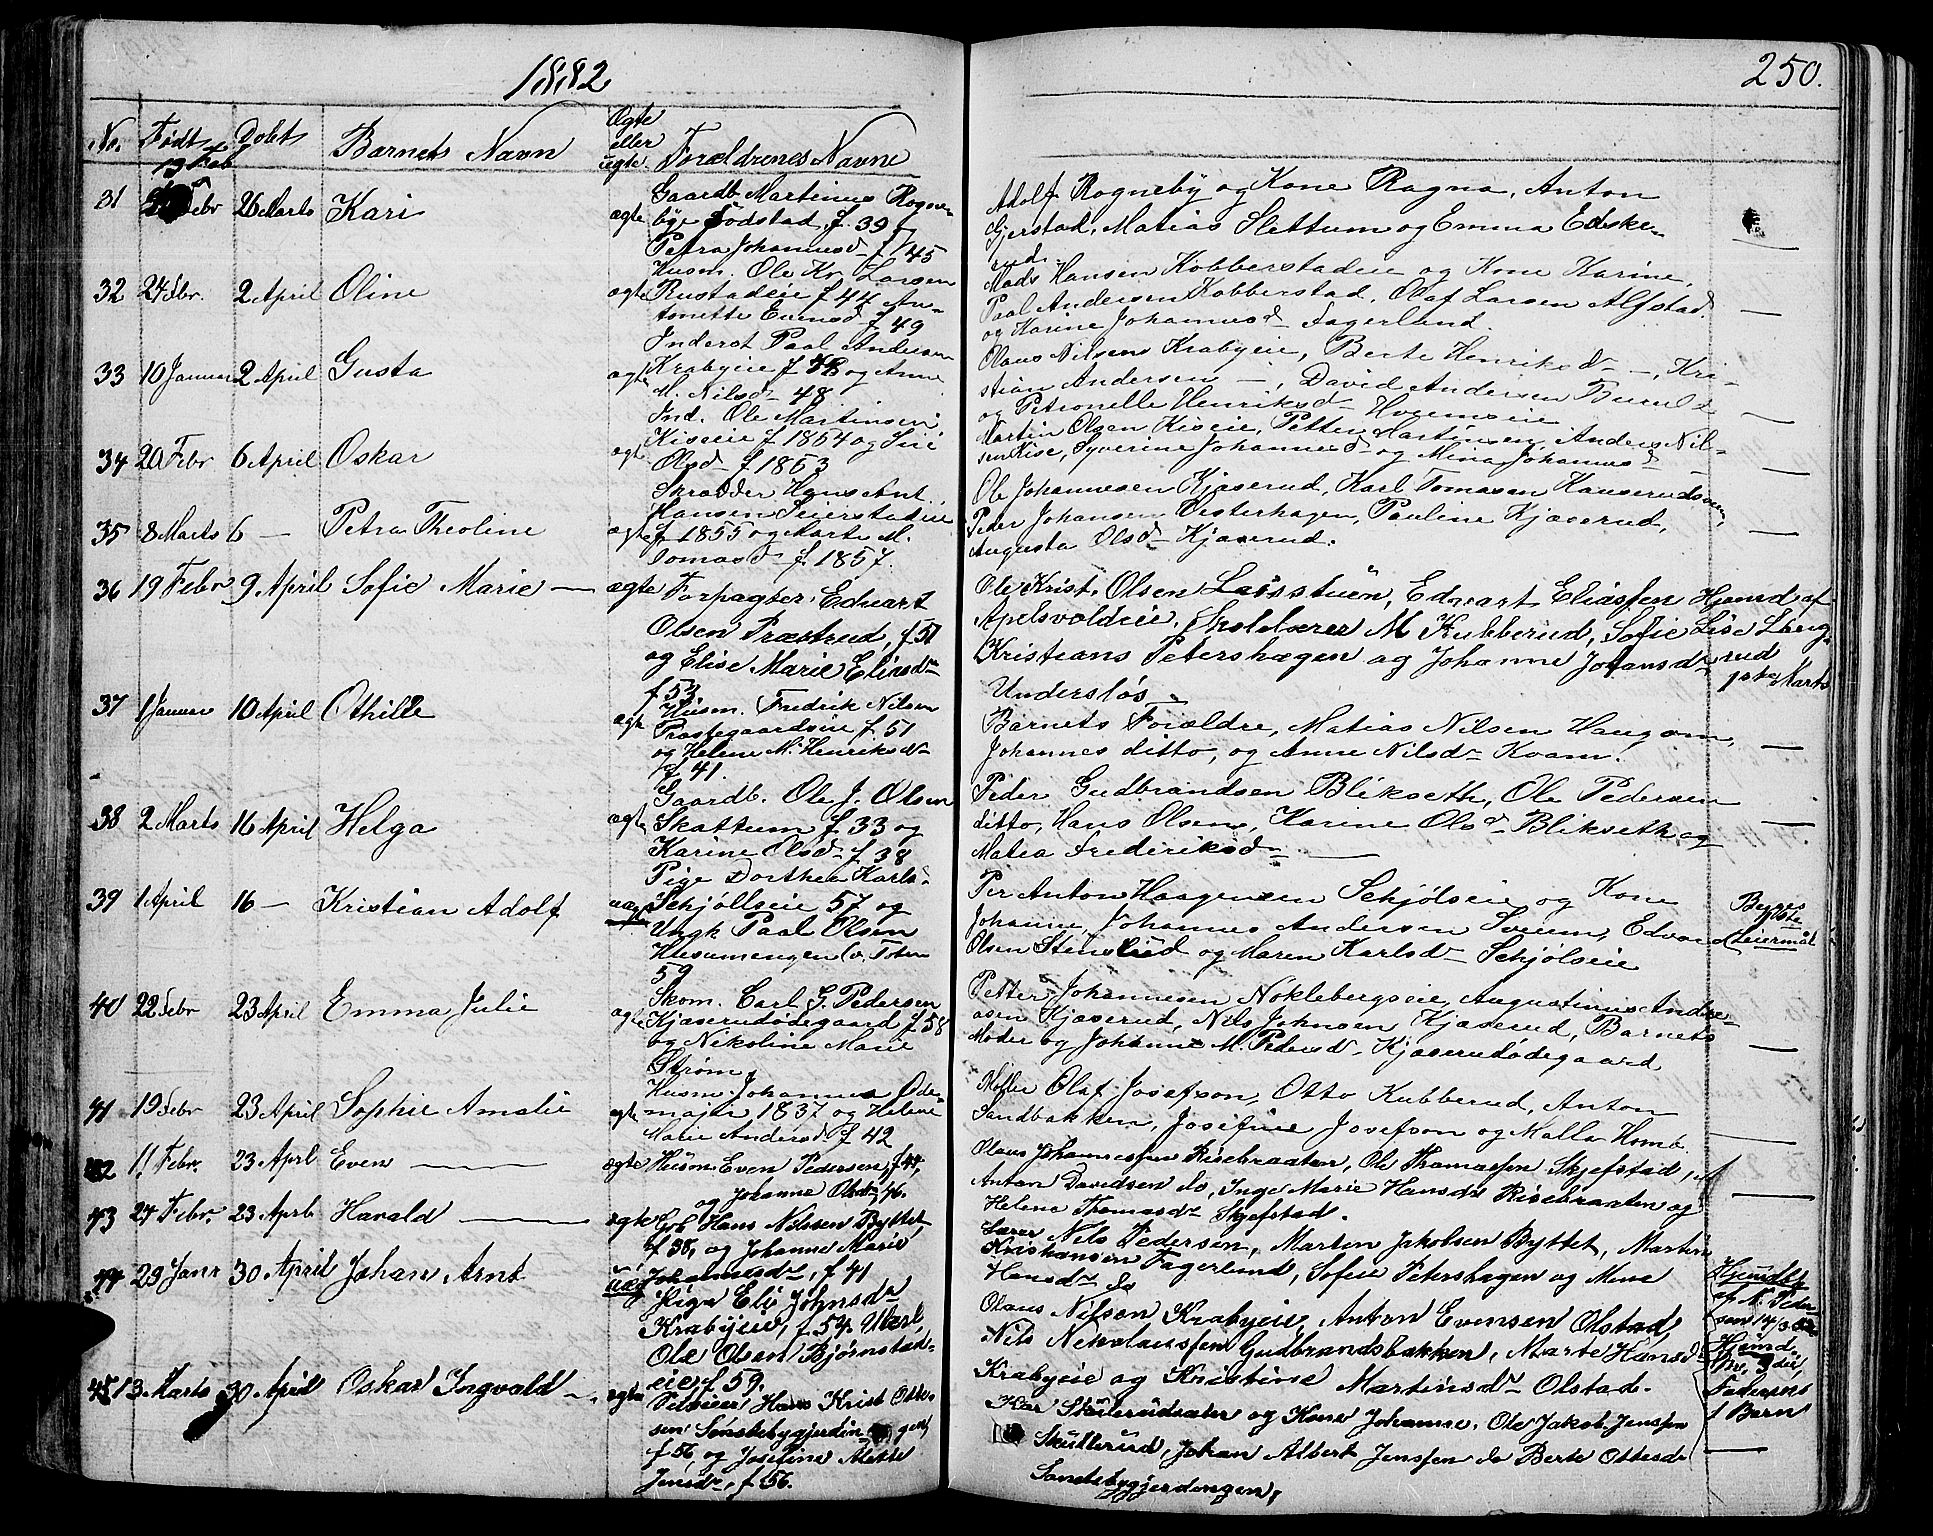 1882
250.
No. Født Døbt Barnets Navn Ægte eller uægte. Forældrenes Navne
13 Feb
31 Febr 26 Marts Kari ægte Gaardb. Martinus Rogne-
bye Fodstad f. 39
Petra Johannesd f 45
Adolf Rogneby og Kone Ragna, Anton
Gjerstad, Matias Slettum og Emma Edske-
rud.
32 24 Febr. 2 April Oline ægte Husm. Ole Kr. Larsen
Rustadeie f 44 An-
tonette Evensd f 49
Mads Hansen Kobberstadeie og Kone Karine,
Paal Andersen Kobberstad, Olaf Larsen Alfstad
og Karine Johannesd Fagerlund.
33 10 Januar 2 April Gusta ægte Inderst Paal Andersen
Krabyeie f 48 og Anne
M. Nilsd 48
Olaus Nilsen Krabyeie, Berte Henriksd —, Kri-
stian Andersen —, David Andersen
og Petronelle Henriksd Hveemseie
34 20 Febr 6 April Oskar ægte Ind. Ole Martinsen
Kiseeie f 1854 og Siri
Olsd f 1853
Martin Olsen Kiseie, Petter Martinsen, Anders Nil-
sen Kise, Syverine Johannesd og Mina Johannesd
35 8 Marts 6 — Petra Theoline ægte Skrædder Hans Ant.
Hansen Seierstadeie
f 1855 og Marte M.
Tomasd f. 1857.
Ole Johannesen Kjøserud, Karl Tomasen Hauserudsveen,
Peder Johansen Vesterhagen, Pauline Kjøserud,
Augusta Olsd Kjøserud.
36 19 Febr 9 April Sofie Marie — ægte Forpagter Edvart
Olsen Præstrud, f. 51
og Elise Marie Eliasd
f 53.
Ole Krist. Olsen Laisstuen, Edvart Eliassen
Apelsvoldeie, Skolelærer M Kubberud, Sofie Lise
Kristians Petershagen og Johanne Johansd
Undersløs.
Hjemd af
Laug-
rud
1ste Marts
37 1 Januar 10 April Othilie ægte Husm. Fredrik Nilsen
Præstegaardseie f. 51
og Helene M. Henriksd
f 41.
Barnets Forældre, Matias Nilsen Haugom,
Johannes ditto, og Anne Nilsd Kvam.
38 2 Marts 16 April Helga ægte Gaardb. Ole J. Olsen
Skattum f. 33 og
Karine Olsd f 38
Peder Gudbrandsen Blikseth, Ole Pedersen
ditto, Hans Olsen, Karine Olsd Blikseth og
Matea Frederiksd
39 1 April 16 — Kristian Adolf uægte Pige Dorthea Karls
Schjøllseie 57 og
Ungk Paal Olsen
Huusumengen (v. Toten
59
Per Anton Haagensen Schjølseie og Kone
Johanne, Johannes Andersen Sveum, Edvard
Olsen Stenslud og Maren Karlsd Schjølseie
Begges
1ste
Leiermål
40 22 Febr 23 April Emma Julie ægte Skom. Carl G. Pedersen
Kjøserudødegaard f 58
og Nikoline Marie
Strøm
Petter Johannesen Nøklebergseie, Augustinus Andre-
asen Kjøserud, Nils Johnsen Kjøserud, Barnets
Moder og Johanne M. Pedersd Kjøserudødegaard
41 19 Febr 23 April Sophie Amalie ægte Husm. Johannes Øde-
majer 1837 og Helene
Marie Andersd f 42
Møller Olaf Josefson, Otto Kubberud, Anton
Sandbakken, Josefine Josefson og Malla Homb
42 11 Febr. 23 Aprl Even — ægte Husm. Even Pedersen, f 44,
og Johanne Olsd, 46.
Olaus Johannessen Risebraaten, Ole Thomassen Skjefstad,
Anton Davidsen do, Inge Marie Hansd Risebraaten og
Helene Thomasd Skjefstad.
43 24 Febr. 23 Aprl. Harald — ægte Grb Hans Nilssen Byttet
f 38, og Johanne Marie
Johannesd, f 41
Lærer Nils Pedersen, Martin Jakobsen Byttet, Martin
Kristiansen Fagerlund, Sofie Petershagen og Mina
Hansd do
44 29 Janr 30 April Johan Arnt uæg Pige Eli Johnsd
Krabyeie, f. 54.
Ole Olsen Bjørnstad-
eie f. 59.
Olaus Nilsen Krabyeie, Anton Evensen Olstad,
Nils Nikolaussen Gudbrandsbakken, Marte Hansd
Krabyeie og Kristine Martinsd Olstad.
Hjemdbt
af N. Peder-
sen 14/3 82
45 13 Marts 30 April Oskar Ingvald — ægte Hans Krist Otte-
sen Sønstebygjerdin
f 56, og Josefine Alette
Jensd, f 56.
Kar Skullerudsæter og Kone Johanne, Ole Jakob Jenssen
Skullerud, Johan Albert Jenssen do Berte Ottesd
Sønstebygjerdingen,